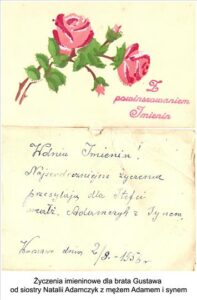 Z
powinszowaniem
Imienin
W dniu Imienin!
Najserdeczniejsze życzenia
przesyłają dla Stefci
Adamczyk z Synem
dnia 2/8 - 1955 r
Życzenia imieninowe dla brata Gustawa
od siostry Natalii Adamczyk z mężem Adamem i synem